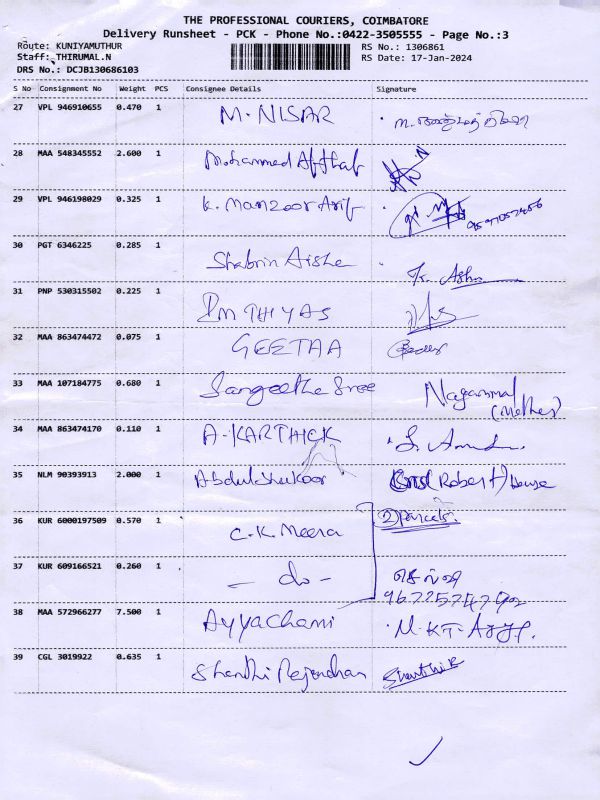 THE PROFESSIONAL COURIERS, COIMBATORE
Delivery Runsheet - PCK - Phone No.:0422-3505555 - Page No.:3
Route: KUNIYAMUTHUR RS No.: 1306861
Staff: THIRUMAL.N RS Date: 17-Jan-2024
DRS No.: DCJB130686103
S No Consignment No Weight PCS Consignee Details Signature
27 VPL 946910655 0.470 1 M. NISAR
28 MAA 548345552 2.600 1 Mohammed Afthab
29 VPL 946198029 0.325 1 K. Manzoor Arif
30 PGT 6346225 0.285 1 Shabrin Aishe
31 PNP 530315502 0.225 1 IMTHIYAS
32 MAA 863474472 0.075 1 GEETAA
33 MAA 107184775 0.680 1 Sangeetha Sree Nagammal
(Mother)
34 MAA 863474170 0.110 1 A-KARTHICK
35 NLM 90393913 2.000 1 Abdul Shukoor (Robert) House
36 KUR 6000197509 0.570 1 C.K. Meera 2) Parcels.
37 KUR 609166521 0.260 1 - do -
38 MAA 572966277 7.500 1 Ayyachami
39 CGL 3019922 0.635 1 Shanthi Rajendran Shanthi R